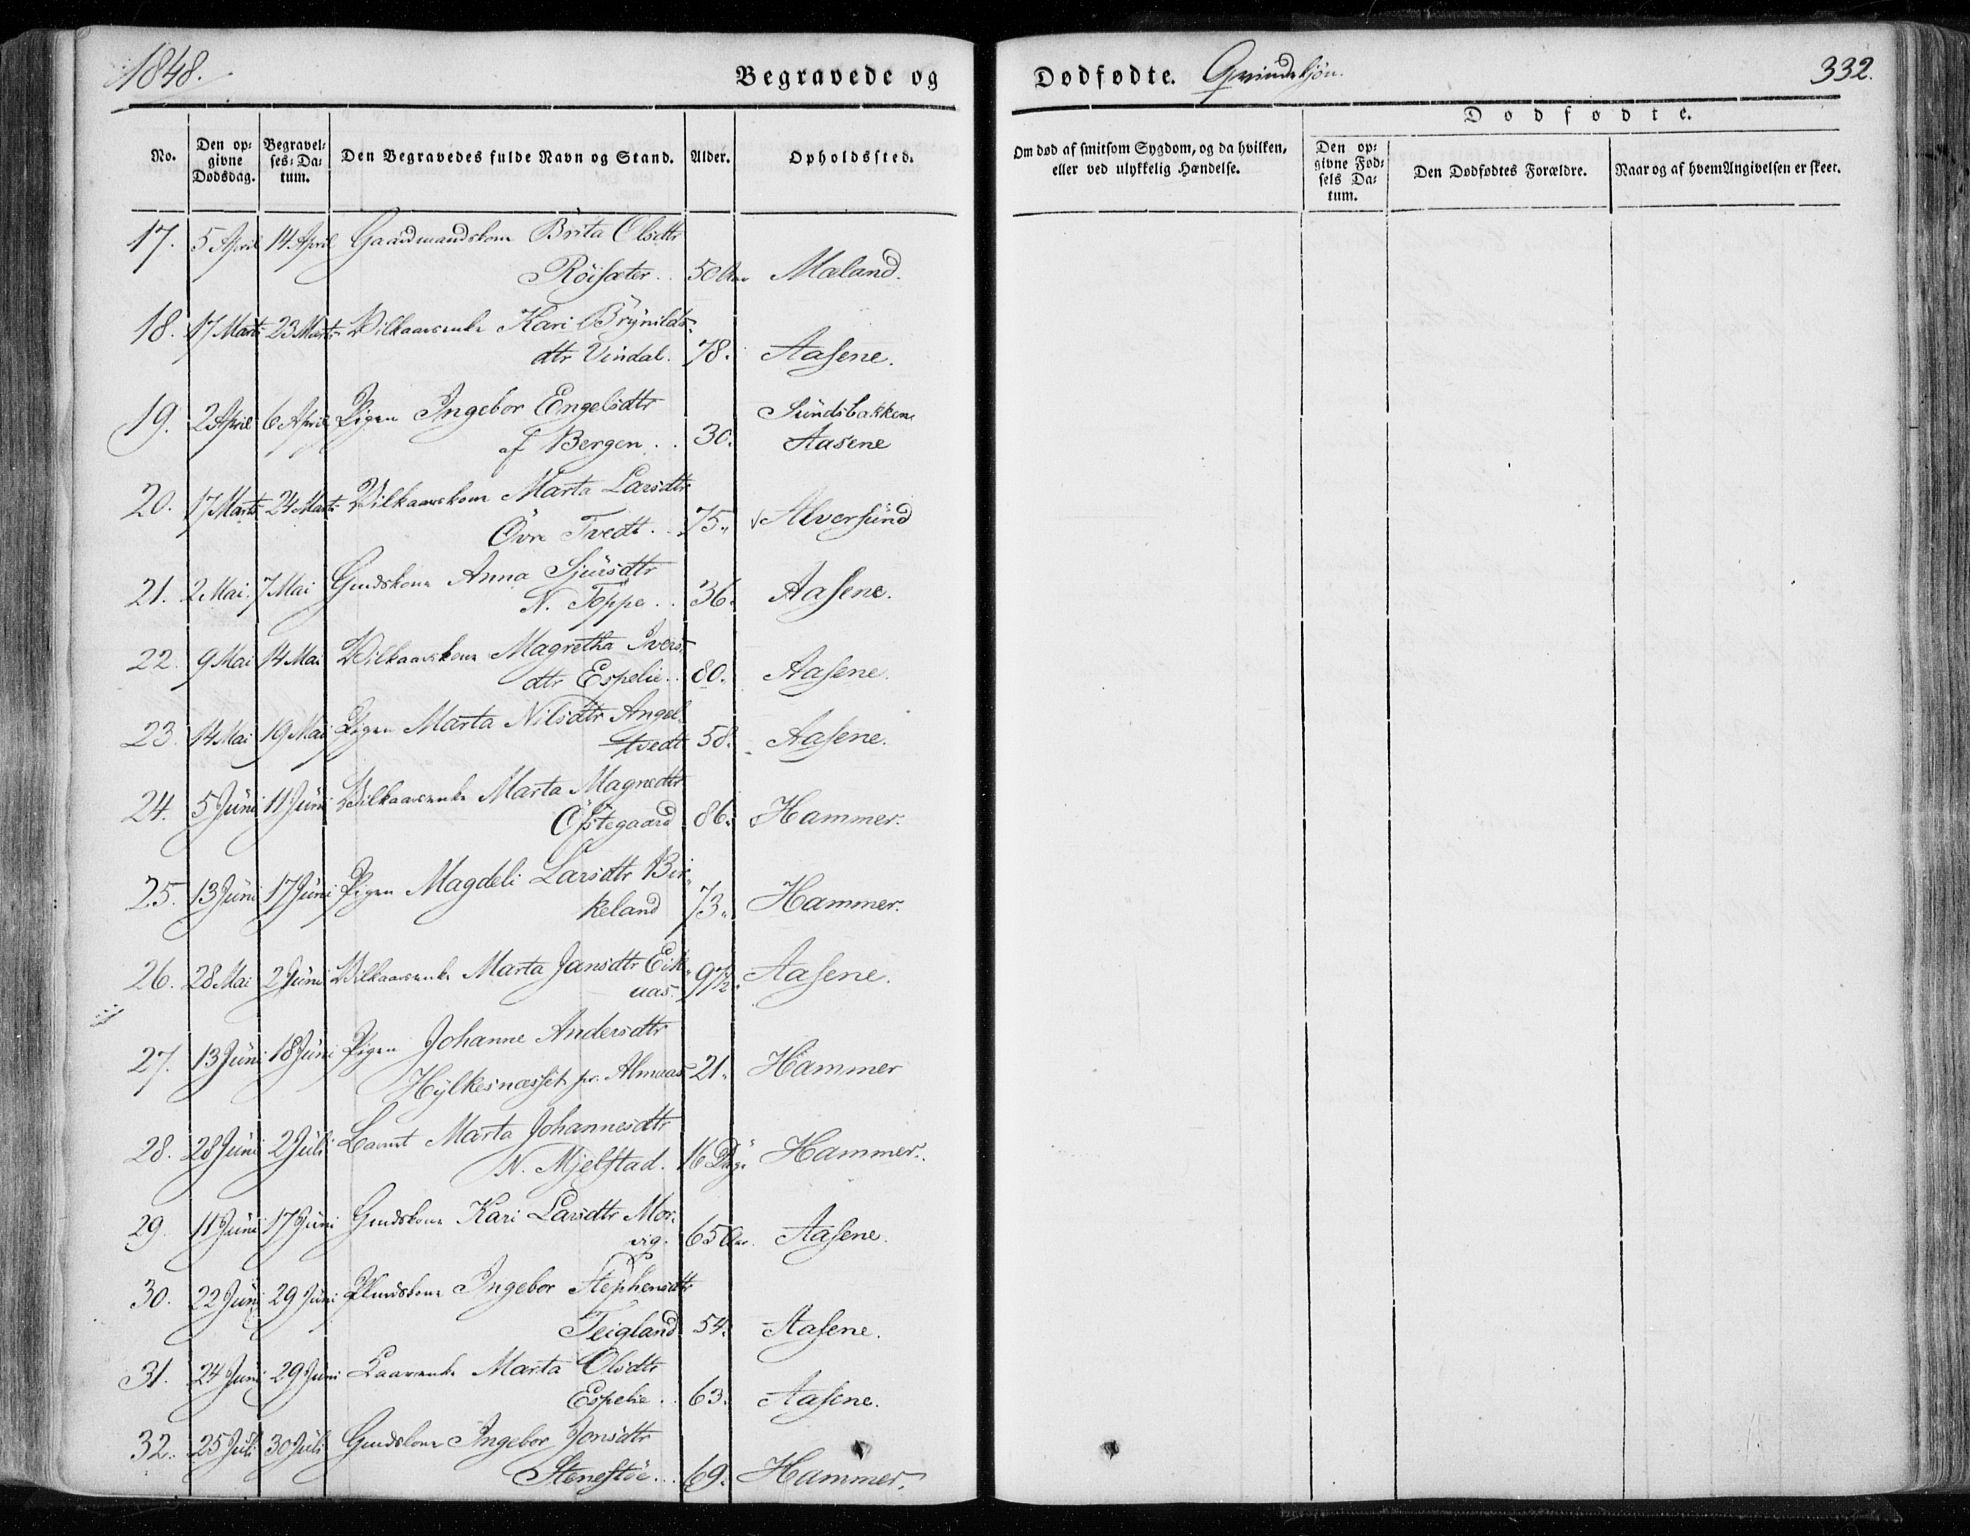 1848.
Begravede og
Dødfødte. Qvindekjön.
332.
No.
Den op-
givne
Dødsdag.
Begravel-
ses-Da-
tum.
Den Begravedes fulde Navn og Stand.
Alder.
Opholdssted.
Om død af smitsom Sygdom, og da hvilken,
eller ved ulykkelig Hændelse.
Dødfødte.
Den op-
givne Fød-
sels Da-
tum.
Den Dødfødtes Forældre.
Naar og af hvem Angivelsen er skeet.
17. 5 April 14 April Gaardmandskone Brita Olsdtr
Röisæter. 50 Aar Mæland.
18. 17 Marts 23 Marts Vilkaarsenke Kari Brÿnilds-
dtr Vindal. 78. Aasene.
19. 2 April 6 April Pigen Ingebor Engelsdtr
af Bergen. 30. Sundsbakken
Aasene
20. 17 Marts 24 Marts Vilkaarskone Marta Larsdtr
Övre Tvedt. 75. Alversund
21. 2 Mai 7 Mai Gmdskone Anna Sjursdtr
N. Toppe. 36. Aasene.
22. 9 Mai 14 Mai Vilkaarskone Magretha Ivers-
dtr Espelie. 80. Aasene.
23. 14 Mai 19 Mai Pigen Marta Nilsdtr Angel-
tvedt 58. Aasene.
24. 5 Juni 11 Juni Vilkaarsenke Marta Magnedtr
Östegaard 86. Hammer.
25. 13 Juni 17 Juni Pigen Magdeli Larsdtr Bir-
keland 73. Hammer.
26. 28 Mai 2 Juni Vilkaarsenke Marta Jansdtr Eik-
naas 97½. Aasene.
27. 13 Juni 18 Juni Pigen Johanne Andersdtr
Hÿlkesnæsset pr. Almaas 21. Hammer
28. 28 Juni 2 Juli Barnet Marta Johannesdtr
N. Mjelstad. 16 Dage Hammer.
29. 11 Juni 17 Juni Gmdskone Kari Larsdtr Mor-
vig. 65 Aar. Aasene.
30. 22 Juni 29 Juni Plmdskone Ingebor Stephensdtr
Teigland 54. Aasene.
31. 24 Juni 29 Juni Kaarenke Marta Olsdtr
Espelie. 63. Aasene.
32. 25 Juli 30 Juli Gmdskone Ingebor Jonsdtr
Stenestöe. 69. Hammer.